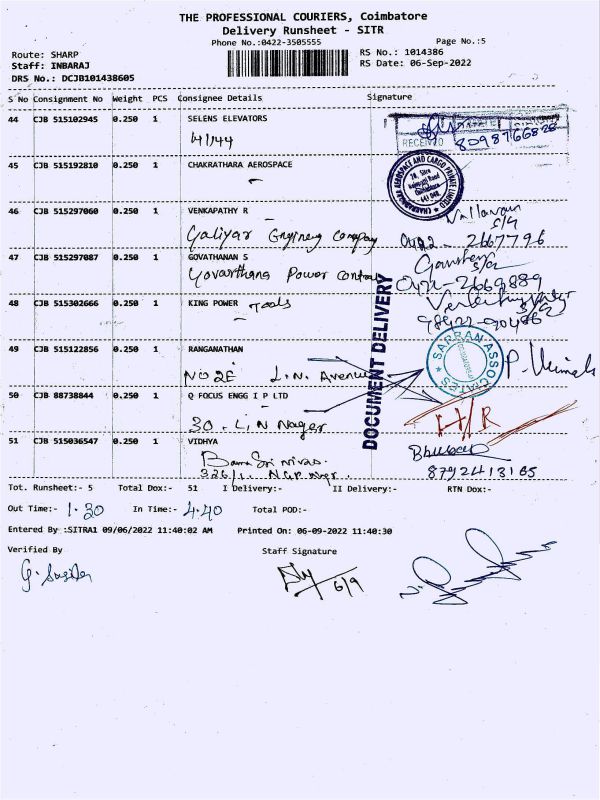 THE PROFESSIONAL COURIERS, Coimbatore
Delivery Runsheet - SITR
Phone No.:0422-3505555
Page No.:5
Route: SHARP
RS No.: 1014386
Staff: INBARAJ
RS Date: 06-Sep-2022
DRS No.: DCJB101438605
S No Consignment No Weight PCS Consignee Details Signature
44 CJB 515102945 0.250 1 SELENS ELEVATORS
4/144
RECEIVED
8098766828
45 CJB 515192810 0.250 1 CHAKRATHARA AEROSPACE
CHAKRADHARA AEROSPACE AND CARGO PRIVATE LIMITED
46 CJB 515297060 0.250 1 VENKAPATHY R
Galiyar Engineerg Company
0422 - 2667796
47 CJB 515297087 0.250 1 GOVATHANAN S
Govarthana Power
0422-2669889
48 CJB 515302666 0.250 1 KING POWER Tools
DOCUMENT DELIVERY
49 CJB 515122856 0.250 1 RANGANATHAN
NO 2E L.N. Avenue
SAPRAN ASSOCIATES
50 CJB 88738844 0.250 1 Q FOCUS ENGG I P LTD
30 - L.N Nager
51 CJB 515036547 0.250 1 VIDHYA
326/1.
8792413165
Tot. Runsheet:- 5 Total Dox:- 51 I Delivery:- II Delivery:- RTN Dox:-
Out Time:- 1.30 In Time:- 4.40 Total POD:-
Entered By :SITRA1 09/06/2022 11:40:02 AM Printed On: 06-09-2022 11:40:30
Verified By Staff Signature
6/9